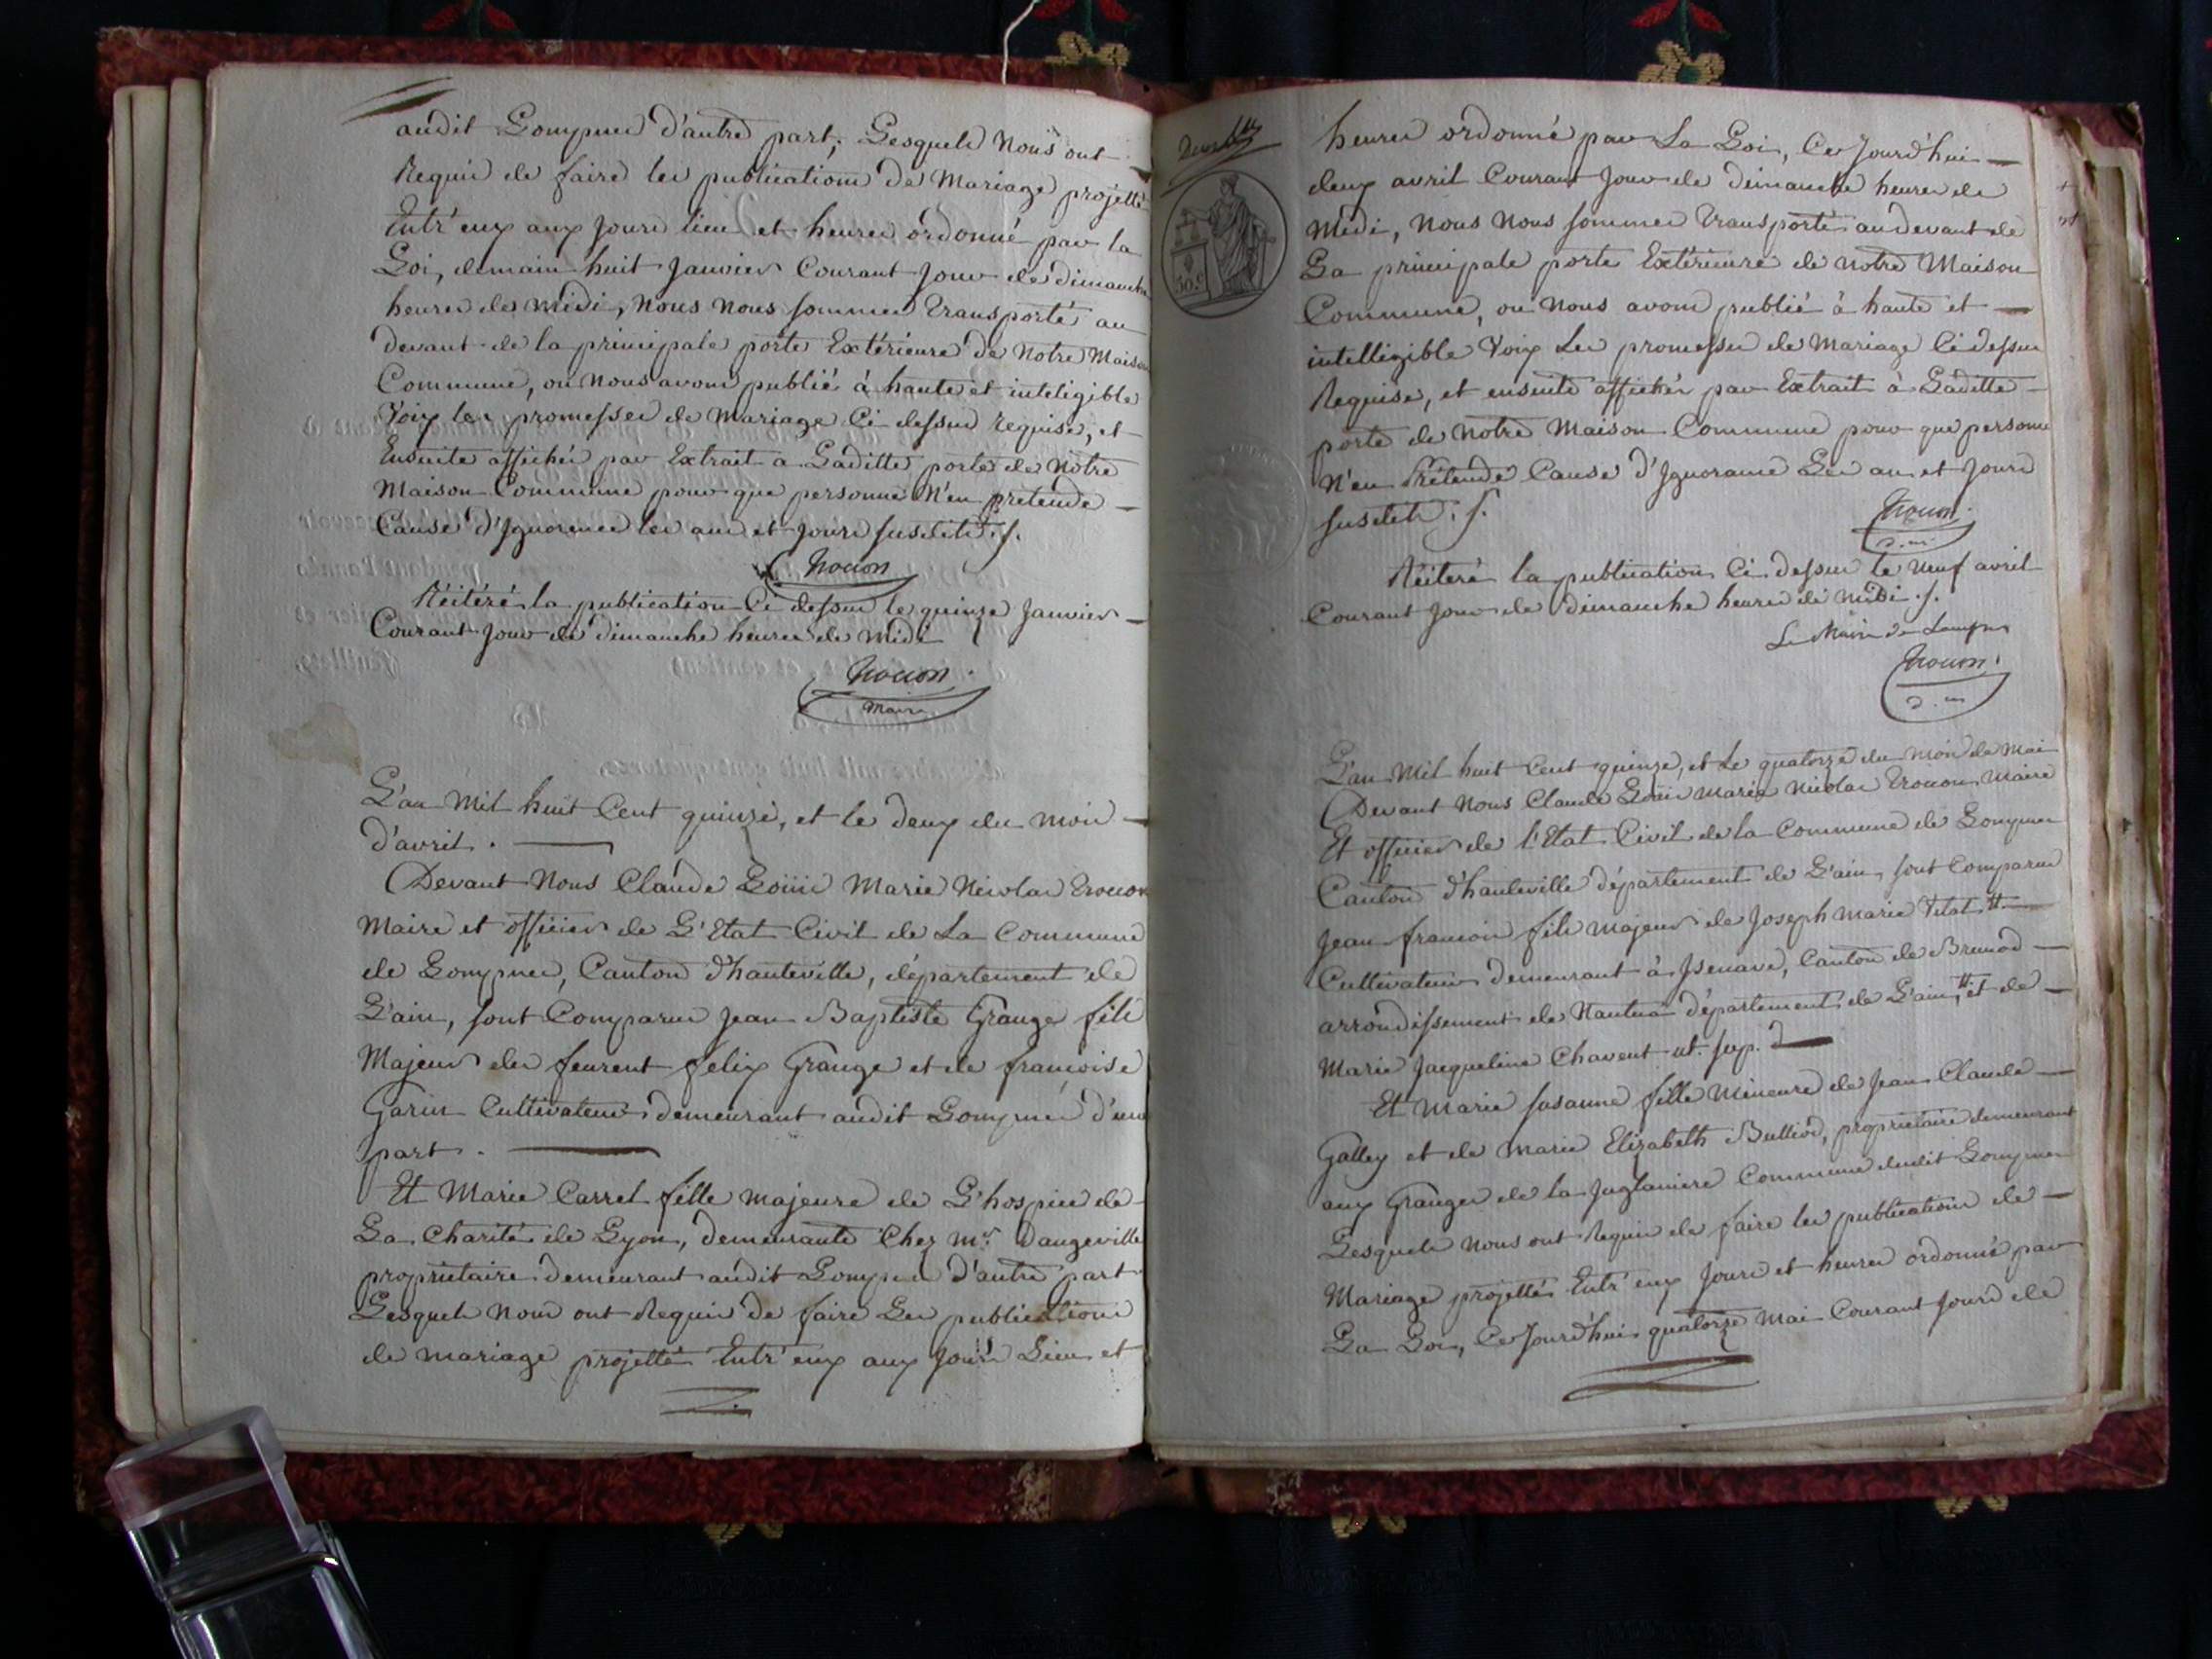 audit Lompnes d'autre part; Lesquels Nous ont
Requis de faire les publications de Mariage projetté
Entr'eux aux Jours lieu et heures ordonné par la
Loi, demain huit Janvier Courant Jour de dimanche
heures de midi, Nous Nous sommes transporté au
devant de la principale porte Extérieure de Notre Maison
Commune, ou Nous avons publié à haute et inteligible
Voix les promesses de Mariage Ci dessus requise, et
Ensuite affichés par Extrait a Laditte porte de Notre
Maison Commune pour que personne N'en pretende
Cause d'Ignorence les an et Jours susdits ./.
Trocon
Réitéré la publication Ci dessus le quinze Janvier
Courant Jour de dimanche heures de Midi
Trocon
Maire
L'an Mil huit Cent quinze, et le deux du mois
d'avril .
Devant Nous Claude Louis Marie Nicolas Trocon
Maire et officier de L'Etat Civil de La Commune
de Lompnes, Canton d'hauteville, département de
L'ain, sont Comparus Jean Baptiste Grange fils
Majeur de feurent felix Grange et de francoise
Garin Cultivateur demeurant audit Lompnes d'une
part .
Et Marie Carrel fille majeure de L'hospice de
La Charité de Lyon, demeurante Chez mr. Dangeville
proprietaire demeurant audit Lompnes d'autre part
Lesquels Nous ont Requis de faire Les publications
de mariage projetté Entr'eux aux Jours Lieu et
heures ordonné par La Loi, Ce Jourd'hui
deux avril Courant Jour de dimanche heures de
Midi, Nous Nous sommes transporté audevant de
La principale porte Extérieure de Notre Maison
Commune, ou Nous avons publié à haute et
intelligible Voix Les promesses de Mariage Ci dessus
Requise, et ensuite affichés par Extrait à Laditte
porte de Notre Maison Commune pour que personne
N'en Prétende Cause d'Ignorance Les an et Jours
susdits ./.
Trocon.
Réiteré la publication Ci dessus le Neuf avril
Courant Jour de dimanche heures de Midi ./.
Le Maire de Lompnes
Trocon.
50 c.
L'an Mil huit Cent quinze, et Le quatorze du mois de Mai
Devant Nous Claude Louis Marie Nicolas Trocon Maire
Et officier de l'Etat Civil de la Commune de Lompnes
Canton d'hauteville département de L'ain, sont Comparus
Jean francois fils Majeur de Joseph Marie
Cultivateur demeurant à Isenave, Canton de Brenod
arrondissement de Nantua département de L'ain, et de
Marie Jacqueline Chavent ut. sup.
Et Marie Susanne fille Mineure de Jean Claude
Galley et de Marie Elizabeth Bulliod, proprietaire demeurant
aux Granges de la Commune dudit Lompnes
Lesquels Nous ont Requis de faire les publications de
Mariage projettés Entr'eux Jours et heures ordonnés par
La Loi, Ce Jourd'hui quatorze Mai Courant Jours de